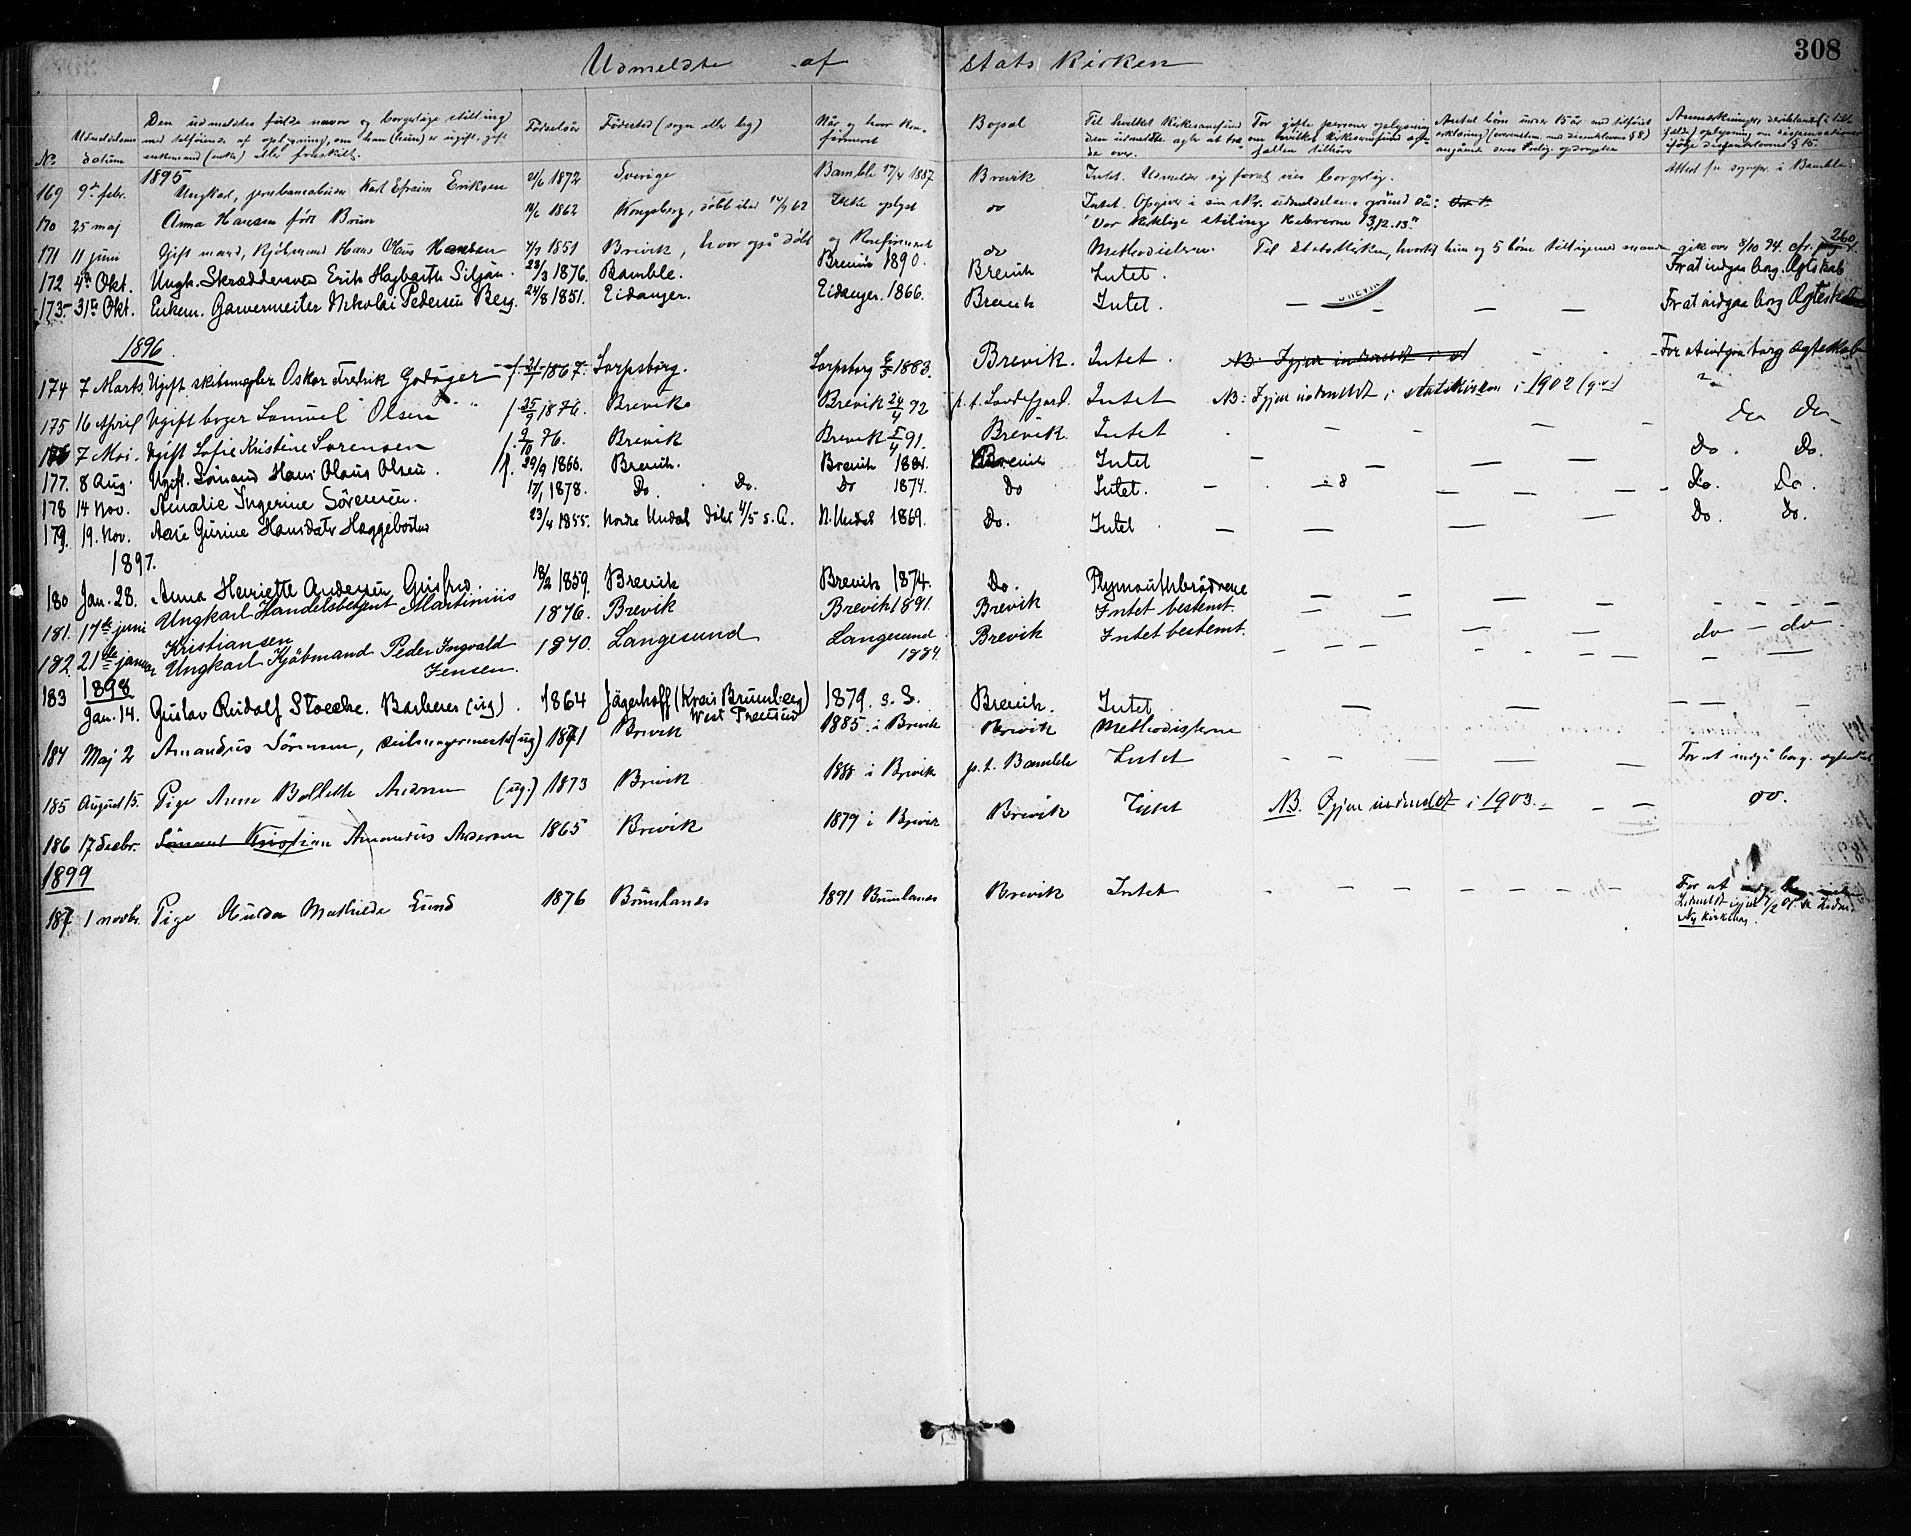 308
Udmeldte af stats kirken
No. Udmeldelsens datum Den udmeldtes fulde navn og borgerlige stilling med tilføiende af oplysning, om han (hun) er ugift, gift enkemand (enke) eller fraskilt. Fødselsår Fødested (sogn eller by) Når og hvor konfirmeret Bopæl Til hvilket kirkesamfund den udmeldte agter at træde over. For gifte personer oplysning om hvilket kirkesamfund ægtefællen tilhører Antal börn under 15 år
1895
169 9de febr. Ungkarl, jernbanearbeider Karl Efraim Eriksen 21/6 1872 Sverige Bamble 17/4 1887 Brevik Intet. Udmelder sig forat vies borgerlig.
170 25 maj Anna Hansen født Brun 1862 Kongsberg, döbt ibid Ikke oplyst do Intet. Opgiver i sin skr. udmeldelse grund
"Vor kirkelige stilling Hebræerne 13,12.13."
171 11 juni Gift mand, Kjöbmand Hans Olaus Hansen 1851 Brevik, hvor også döbt og konfirmeret do Methodisterne. Til statskirken, hvortil hun og 5 börn gik over 8/10 94. cfr. pag 260
172 4de Okt. Ungk. Skræddersvend Erik Hagbarth Siljan. 23/3 1876. Bamble. Brevik 1890. Brevik Intet. For at indgaa borg. Ægteskab
173 31te Okt. Enkem. Garvermester Nikolai Pedersen Berg. 24/8 1851. Eidanger. Eidanger. 1866. Brevik Intet. — — — — For at indgaa borg Ægteskab
1896
174 7 Marts Ugift skibsmægler Oskar Fredrik Godager f. 1867. Sarpsborg. Sarpsborg 1883. Brevik. Intet. NB. Igjen indmeldt i st — — For at indgaa borg ægteskab
175 16 April Ugift bager Samuel Olsen f. 25/9 1876. Brevik Brevik 24/4 92 p. t. Sandefjord. Intet NB: Igjen indmeldt i statskirken i 1902
176 7 Mai. Ugift Sofie Kristine Sørensen f. 9/10 76. Brevik Brevik 5/4 91. Brevik. Intet — — — — Do Do
177. 8 Aug. Ugift. Sömand Hans Olaus Olsen. f. 29/9 1866. Brevik. Brevik 1881. Brevik Intet — — — — Do. Do.
178 14 Nov. Amalie Ingerine Sörensen. 17/1 1878. Do. Do. Do 1874. Do Intet. — — — — Do. Do.
179. 19. Nov. Aase Gurine Hansdatr Hæggebostad 23/4 1855. Nordre Undal döbt 4/5 s. A. N. Undal 1869. Do. Intet — — — — Do. Do.
1897.
180 Jan. 28. Anna Henriette Andersen Grisfred. 18/2 1859. Brevik Brevik 1874. Do. Plymouthbrödrene
181. 17de juni Ungkarl Handelsbetjent Martinius
Kristiansen 1876. Brevik Brevik 1891. Brevik Intet bestemt. — — — —
182. 21de januar Ungkarl Kjöbmand Peder Ingvald
Jensen. 1870. Langesund Langesund 1884. Brevik Intet bestemt. — — — do — do
1898
183 Jan. 14. Gustav Rudolf Stoecke. Barberer (ug). 1864 Jägerhoff (Kreis Brumberg) West Preussen 1879. s. S. Brevik. Intet — — — —
184 Maj 2 Amandus Sörensen, seilmagermester (ug) 1871 Brevik 1885 i Brevik Brevik Methodisterne
185 August 15. Pige Anne Bollette Andersen (ug.) 1873 Brevik 1888 i Brevik p. t. Bamble Intet — — — — For at indgå borg. ægteskab
186 17 decbr. Sömand Kristian Amandus Andersen 1865 Brevik 1879 i Brevik Brevik Intet NB. Igjen indmeldt i 1903. — — do.
1899
187 1 novbr. Pige Hulda Mathilde Lund 1876 Brunlanes 1891 Brunlanes Brevik Intet — — — — For at
Indmeldt igjen 7/2 01.
Ny kirkebog.